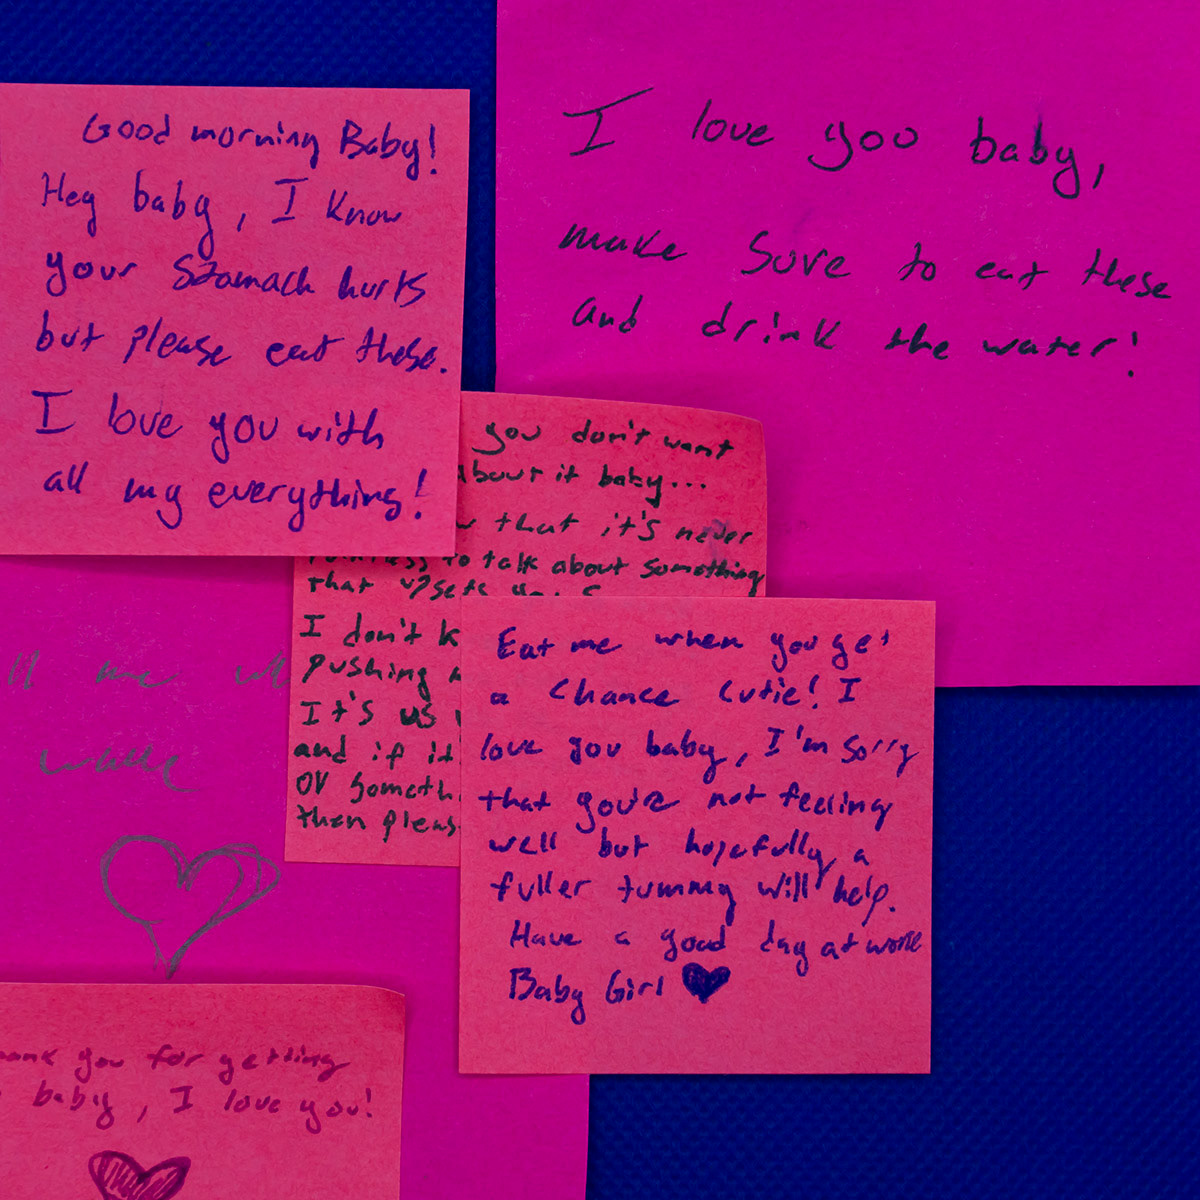 Good morning Baby!
Hey baby, I know
your stomach hurts
but please eat these.
I love you with
all my everything!
I love you baby,
make sure to eat these
and drink the water!
you don't want
about it baby...
that it's never
to talk about something
that upsets you
I don't
pushing
It's us
and if it
or
then
Eat me when you get
a chance cutie! I
love you baby, I'm sorry
that you're not feeling
well but hopefully a
fuller tummy will help.
Have a good day at work
Baby Girl
me
you for getting
baby, I love you!